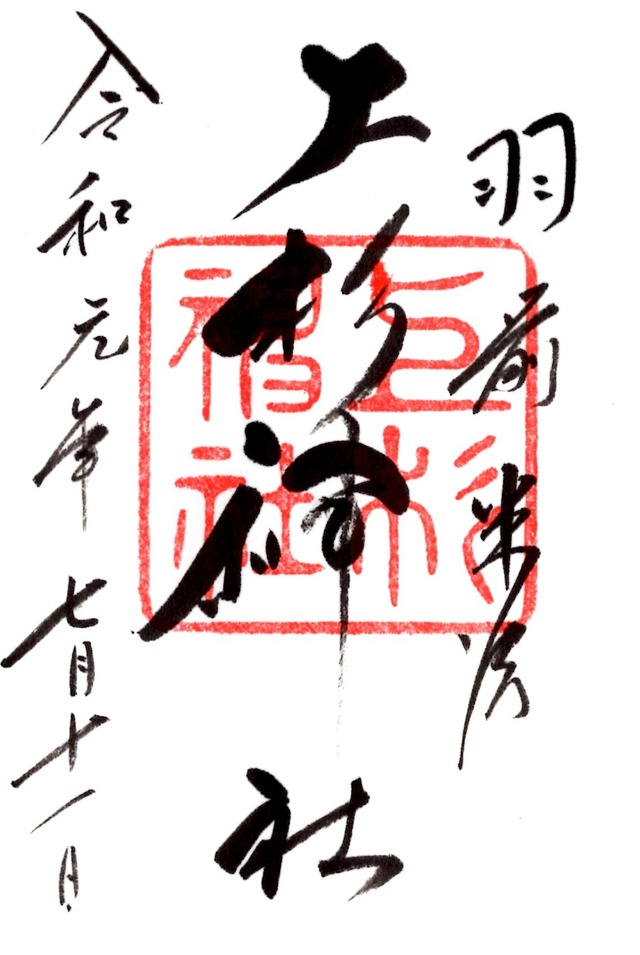 羽前米沢
上杉神社
上杉神社
令和元年七月十一日